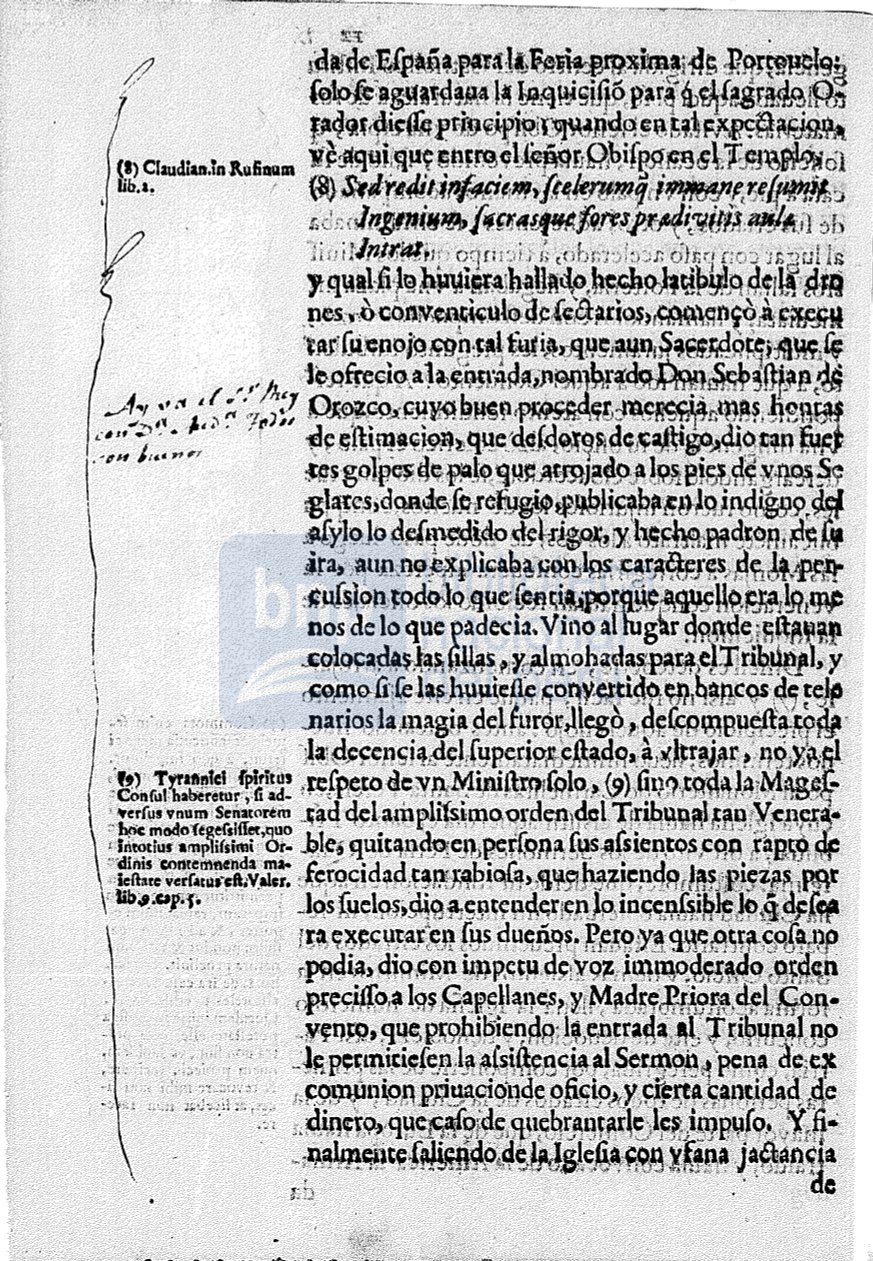 da de España para la Feria proxima de Portouelo;
solo se aguardaua la Inquicisiõ para q̃ el sagrado O-
rador diesse principio; quando en tal expectacion,
vè aqui que entro el señor Obispo en el Templo,
(8) Sed redit in faciem, scelerumq̃ immane resumit
Ingenium, sacrasque fores prædivitis aulæ
Intrat.
y qual si lo huuiera hallado hecho latibulo de la dro
nes, ò conventiculo de sectarios, començò à execu
tar su enojo con tal furia, que aun Sacerdote, que se
le ofrecio a la entrada, nombrado Don Sebastian de
Orozco, cuyo buen proceder merecia mas honras
de estimacion, que desdoros de castigo, dio tan fuer
tes golpes de palo que arrojado a los pies de vnos Se
glares, donde se refugio, publicaba en lo indigno del
asylo lo desmedido del rigor, y hecho padron de su
ira, aun no explicaba con los caracteres de la per-
cussion todo lo que sentia; porque aquello era lo me
nos de lo que padecia. Vino al lugar donde estauan
colocadas las sillas, y almohadas para el Tribunal, y
como si se las huuiesse convertido en bancos de telo
narios la magia del furor, llegò, descompuesta toda
la decencia del superior estado, à vltrajar, no ya el
respeto de vn Ministro solo, (9) sino toda la Mages-
tad del amplissimo orden del Tribunal tan Venera-
ble, quitando en persona sus assientos con rapto de
ferocidad tan rabiosa, que haziendo las piezas por
los suelos, dio a entender en lo incenssible lo q̃ desea
ra executar en sus dueños. Pero ya que otra cosa no
podia, dio con impetu de voz immoderado orden
precisso a los Capellanes, y Madre Priora del Con-
vento, que prohibiendo la entrada al Tribunal no
le permitiesen la assistencia al Sermon, pena de ex
comunion priuacion de oficio, y cierta cantidad de
dinero, que caso de quebrantarle les impuso. Y fi-
nalmente saliendo de la Iglesia con vfana jactancia
de
(8) Claudian. in Rufinum
lib. 1.
Ay va el Sr. Rey
con
con buenos
(9) Tyrannici spiritus
Consul haberetur, si ad-
versus vnum Senatorem
hoc modo segessisset, quo
intotius amplissimi Or-
dinis contemnenda ma-
iestate versatus est. Valer.
lib. 9. cap. 5.